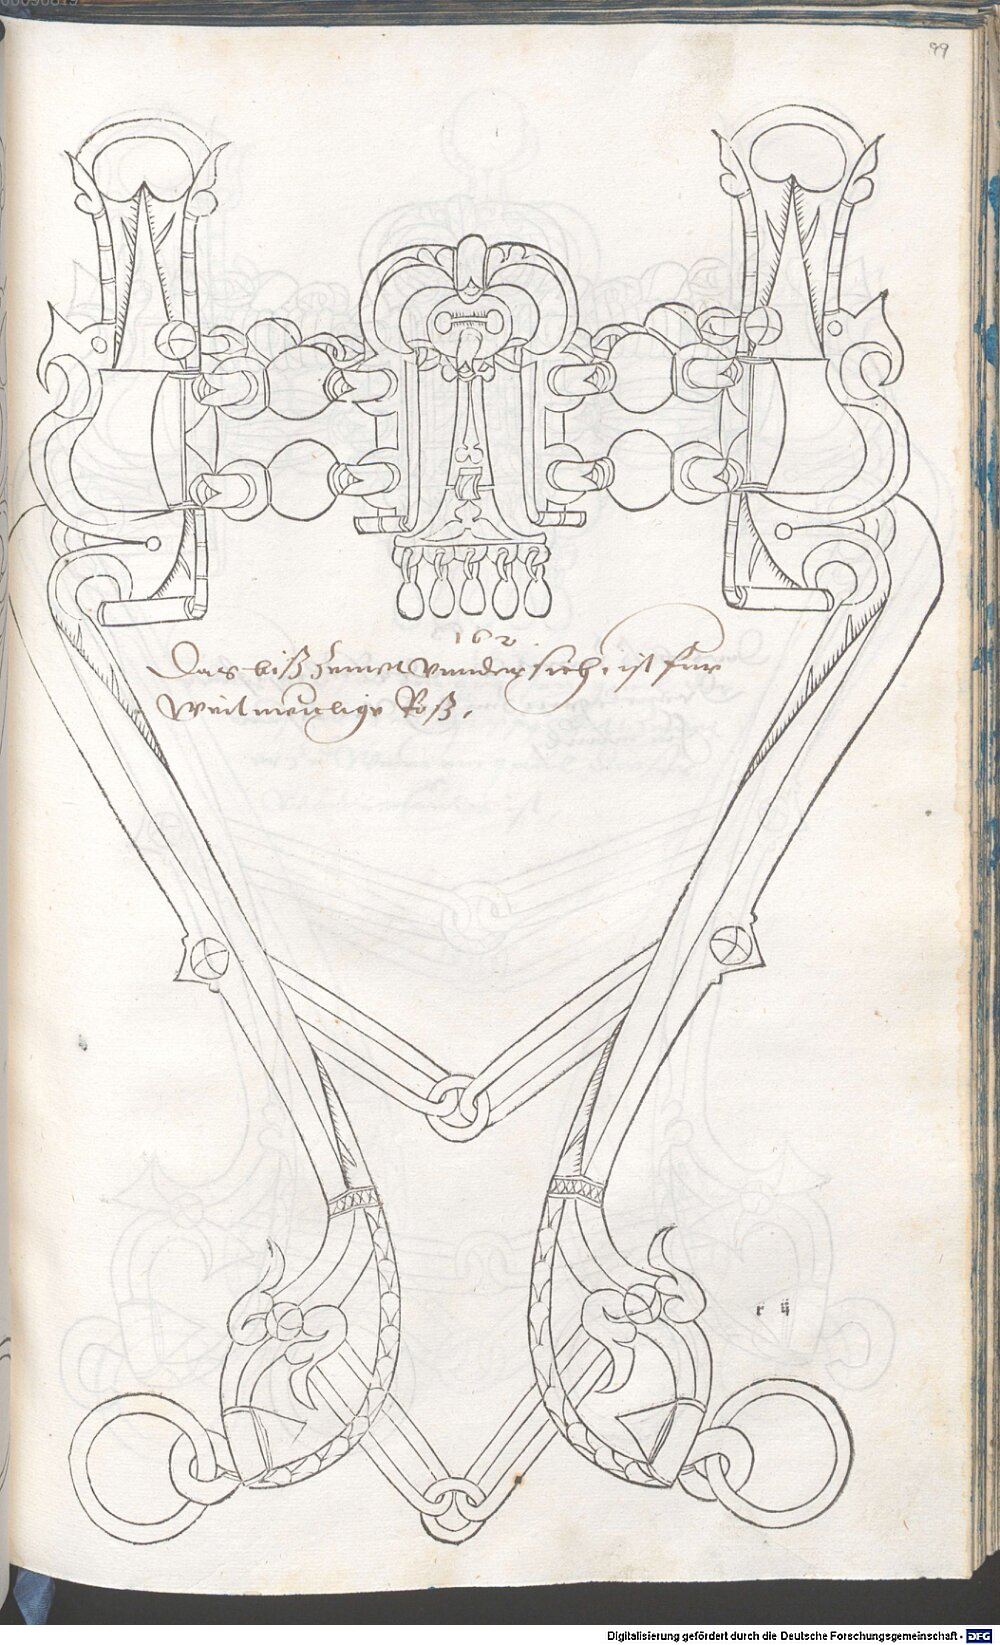 99
162
Das biß zeimet vnnder sich, ist für
Weitmeülige Roß.
r ij
Digitalisierung gefördert durch die Deutsche Forschungsgemeinschaft - DFG